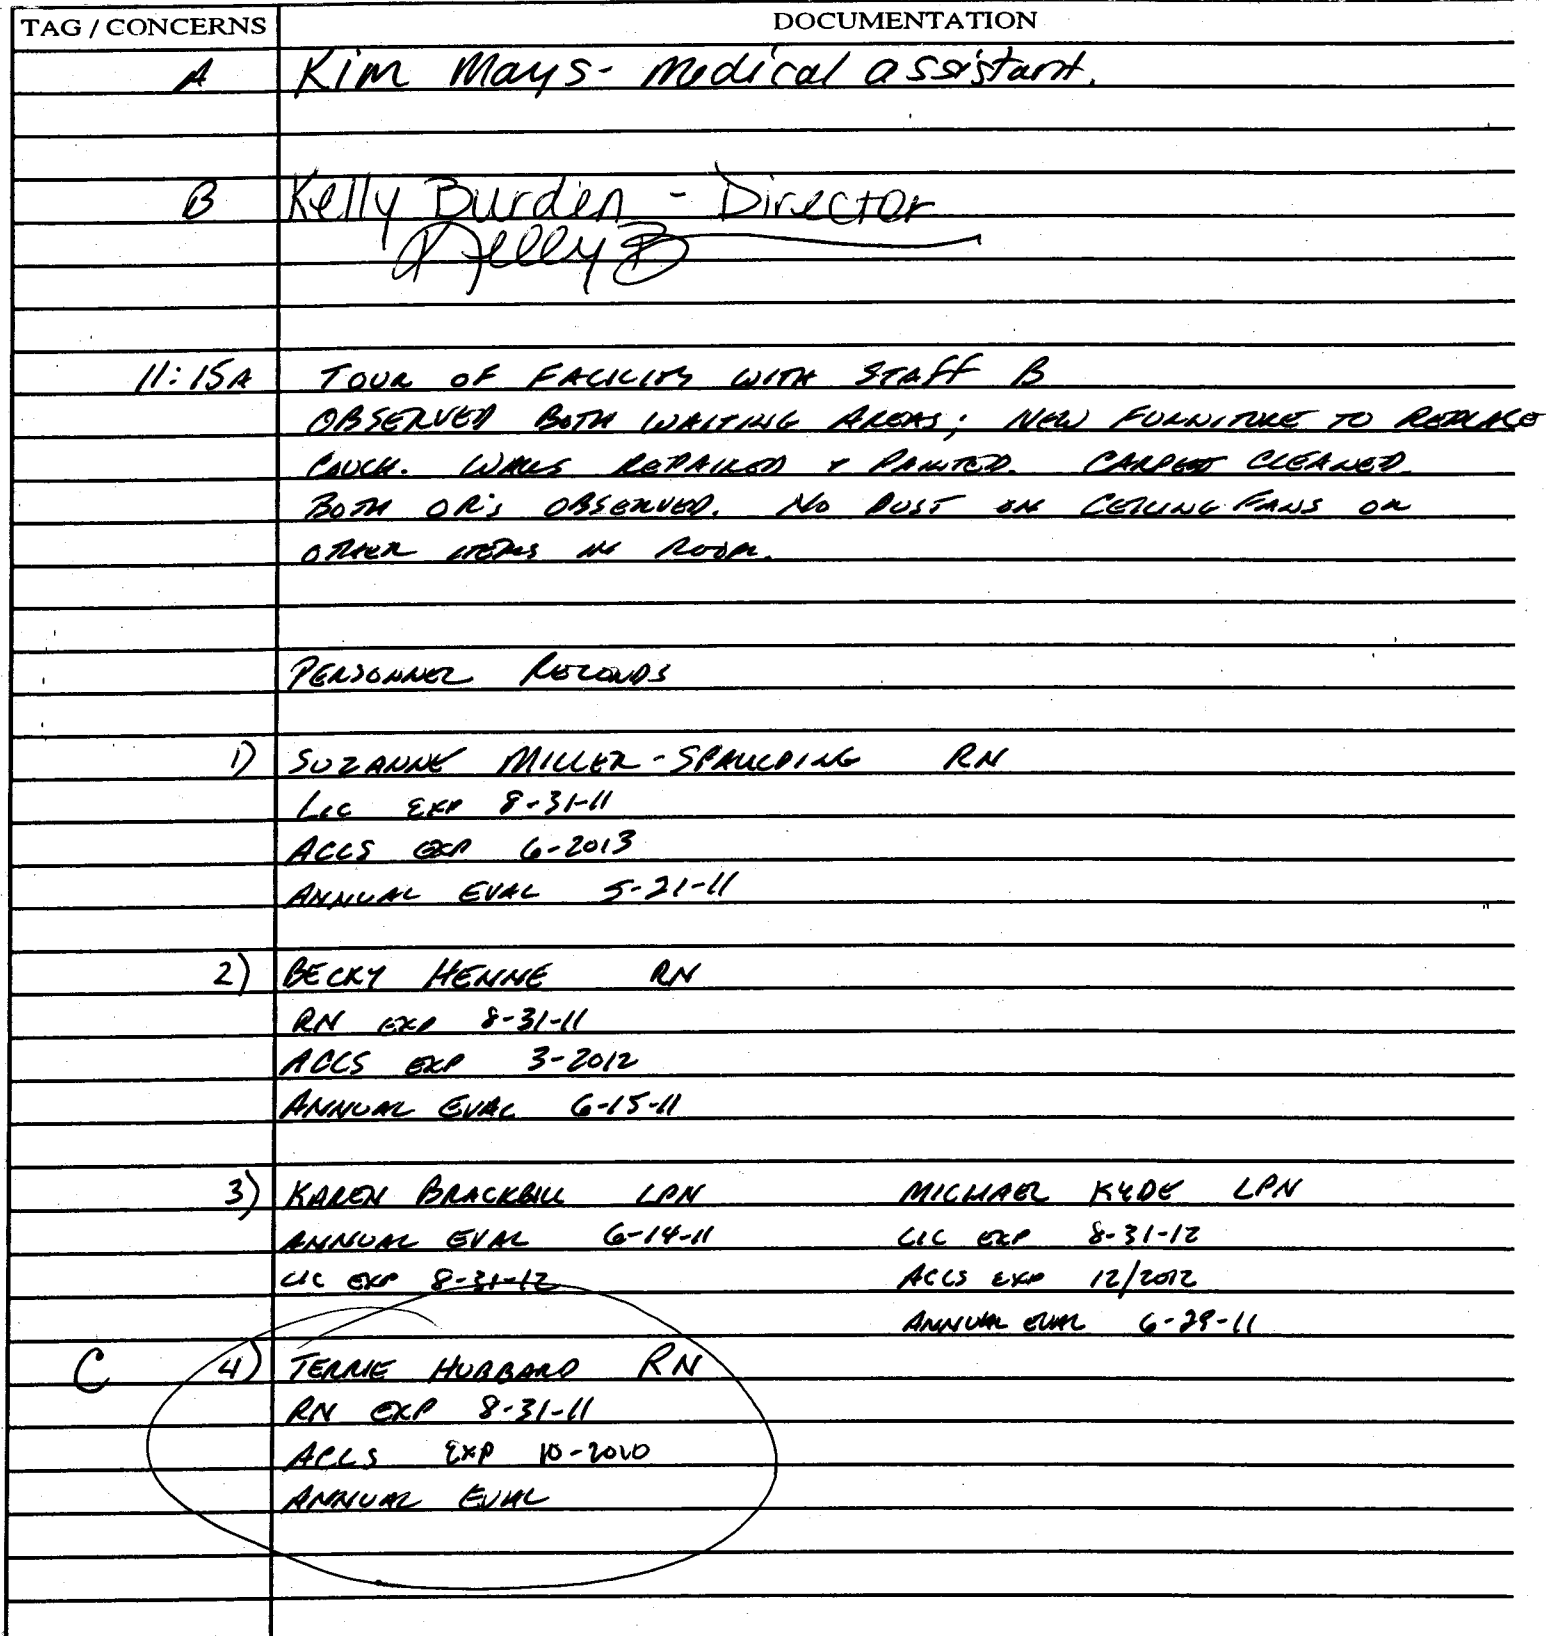 TAG / CONCERNS DOCUMENTATION
A Kim Mays - Medical assistant.
B Kelly Burden - Director
Kelly B
11:15A TOUR OF FACILITY WITH STAFF B
OBSERVED BOTH WAITING AREAS; NEW FURNITURE TO REPLACE
COUCH. WALLS REPAIRED & PAINTED. CARPET CLEANED.
BOTH OR'S OBSERVED. NO DUST ON CEILING FANS OR
OTHER ITEMS IN ROOM.
PERSONNEL RECORDS
1) SUZANNE MILLER-SPAULDING RN
LIC EXP 8-31-11
ACLS EXP 6-2013
ANNUAL EVAL 5-21-11
2) BECKY HENNE RN
RN EXP 8-31-11
ACLS EXP 3-2012
ANNUAL EVAL 6-15-11
3) KAREN BRACKBILL LPN MICHAEL KYDE LPN
ANNUAL EVAL 6-14-11 LIC EXP 8-31-12
LIC EXP 8-31-12 ACLS EXP 12/2012
ANNUAL EVAL 6-29-11
C 4) TERRIE HUBBARD RN
RN EXP 8-31-11
ACLS EXP 10-2010
ANNUAL EVAL